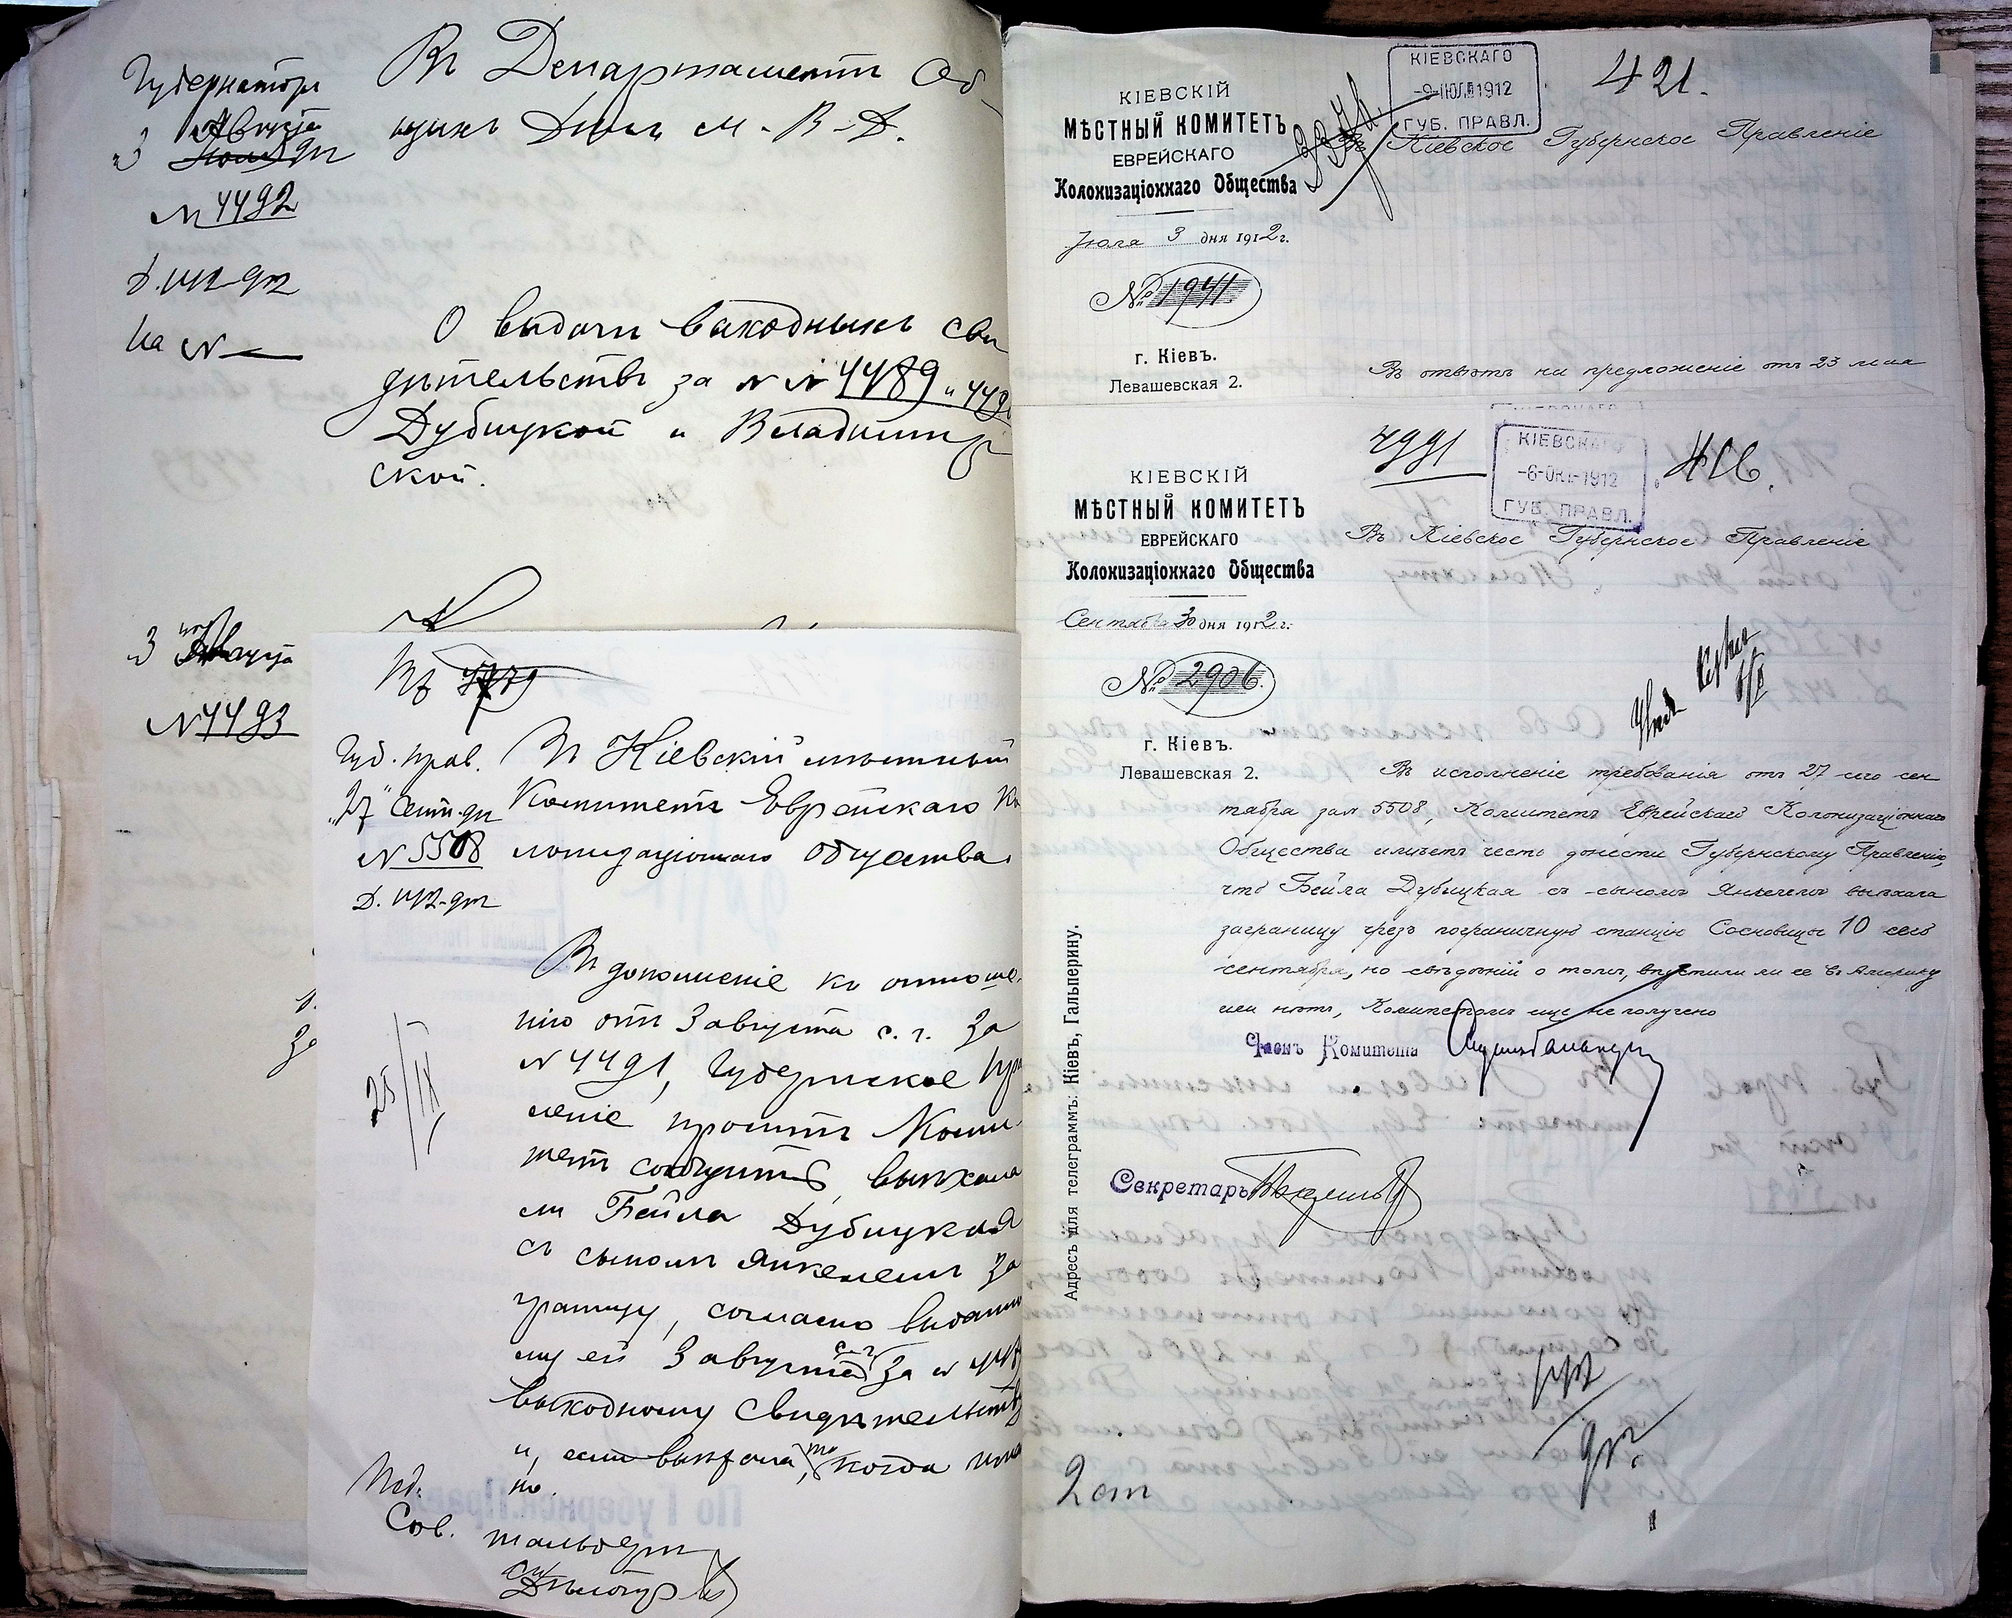 Губернаторъ
Августа
3
№ 4492
На №
Въ Департаментъ Об
щихъ Дѣлъ М. В. Д.
О выдачи выходныхъ сви
дѣтельствъ за №№ 4489 и 449
Дубицкой и Владимир
ской.
3 Августа
№ 4493
Губ. Прав.
"27" Сент.
№ 5508
Въ Кіевскій мѣстный
Комитетъ Еврейскаго Ко
лонизаціоннаго Общества.
25/IX
Въ дополненіе къ отноше
нію отъ 3 августа с. г. за
№ 4491, Губернское Пра
леніе проситъ Коми
тетъ сообщить, выѣхала
ли Бейла Дубицкая
съ сыномъ Янкелемъ за
границу, согласно выданно
му ей 3 августа с.г. за № 448
выходному свидѣтельств
и, если выѣхала, то когда имен
но.
Сов.
КІЕВСКІЙ
МѢСТНЫЙ КОМИТЕТЪ
ЕВРЕЙСКАГО
Колонизаціоннаго Общества
Іюля 3 дня 1912 г.
№ 1941.
г. Кіевъ.
Левашевская 2.
КІЕВСКАГО
-9-ІЮЛ.1912
ГУБ. ПРАВЛ.
421.
Въ Кіевское Губернское Правленіе
Въ отвѣтъ на предложеніе отъ 23 мая
4991
КІЕВСКАГО
-6-ОКТ-1912
ГУБ. ПРАВЛ.
КІЕВСКІЙ
МѢСТНЫЙ КОМИТЕТЪ
ЕВРЕЙСКАГО
Колонизаціоннаго Общества
Сентября 30 дня 1912 г.
№ 2906.
г. Кіевъ.
Левашевская 2.
Въ Кіевское Губернское Правленіе
Въ исполненіе требованія отъ 27 сего сен
тября за № 5508, Комитетъ Еврейскаго Колонизаціоннаго
Общества имѣетъ честь донести Губернскому Правленію,
что Бейла Дубицкая съ сыномъ Янкелемъ выѣхала
заграницу чрезъ пограничную станцію Сосновицы 10 сего
сентября, но свѣдѣній о томъ, впустили ли ее въ Америку
или нѣтъ, Комитетомъ еще не получено
Членъ Комитета
Секретарь
Адресъ для телеграммъ: Кіевъ, Гальперину.